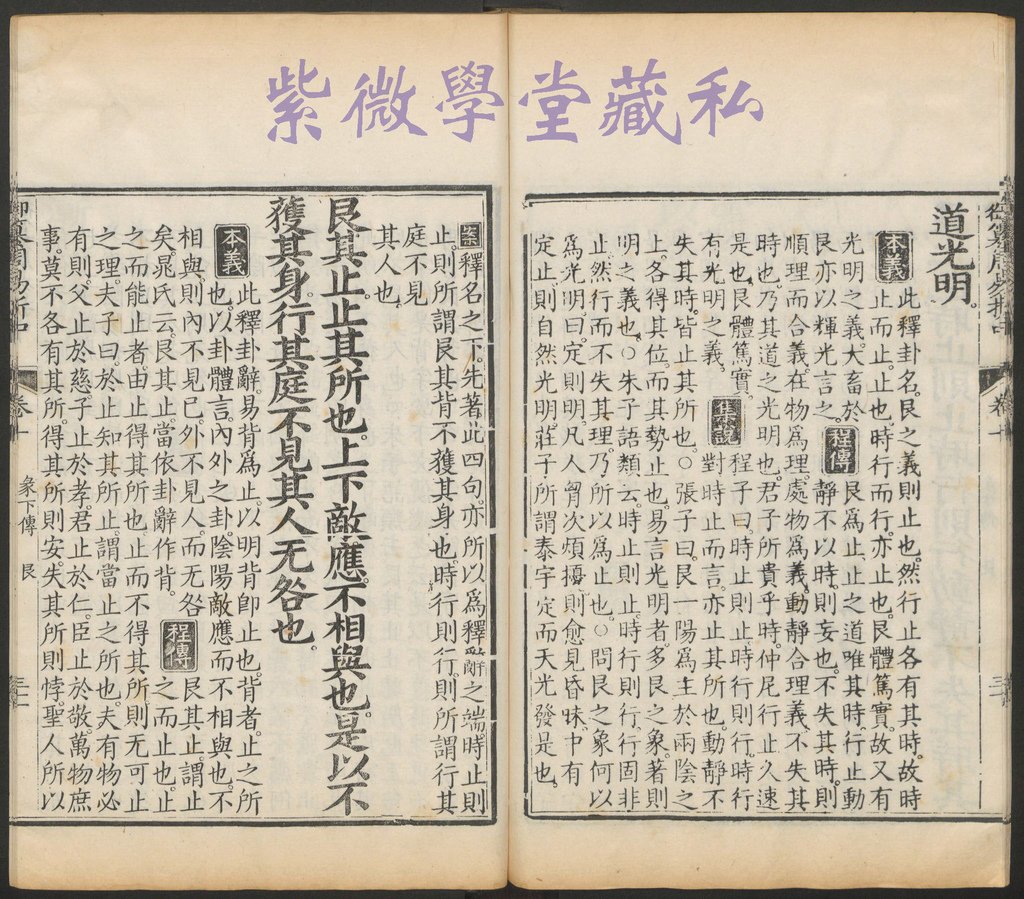 紫微學堂藏私
道光明。
本義
此釋卦名。艮之義則止也。然行止各有其時。故時
止而止。止也。時行而行。亦止也。艮體篤實。故又有
光明之義。大畜於
艮亦以輝光言之。
程傳
艮爲止。止之道唯其時。行止動
靜不以時。則妄也。不失其時。則
順理而合義。在物爲理。處物爲義。動靜合理義。不失其
時也。乃其道之光明也。君子所貴乎時。仲尼行止久速
是也。艮體篤實。
有光明之義。
集說
程子曰。時止則止。時行則行。時行
對時止而言。亦止其所也。動靜不
失其時。皆止其所也。○張子曰。艮一陽爲主於兩陰之
上。各得其位。而其勢止也。易言光明者。多艮之象。著則
明之義也。○朱子語類云。時止則止。時行則行。行固非
止。然行而不失其理。乃所以爲止也。○問艮之象何以
爲光明。曰。定則明。凡人胷次煩擾。則愈見昏昧。中有
定止。則自然光明。莊子所謂泰宇定而天光發是也。
案
釋名之下。先著此四句。亦所以爲釋辭之端。時止則
止。則所謂艮其背不獲其身也。時行則行。則所謂行其
庭不見
其人也。
艮其止。止其所也。上下敵應。不相與也。是以不
獲其身。行其庭不見其人。无咎也。
本義
此釋卦辭。易背爲止。以明背卽止也。背者。止之所
也。以卦體言。內外之卦。陰陽敵應而不相與也。不
相與。則內不見已。外不見人。而无咎
矣。晁氏云。艮其止。當依卦辭作背。
程傳
艮其止。謂止
之而止也。止
之而能止者。由止得其所也。止而不得其所。則无可止
之理。夫子曰。於止知其所止。謂當止之所也。夫有物必
有則。父止於慈。子止於孝。君止於仁。臣止於敬。萬物庶
事。莫不各有其所。得其所則安。失其所則悖。聖人所以
彖下傳 艮